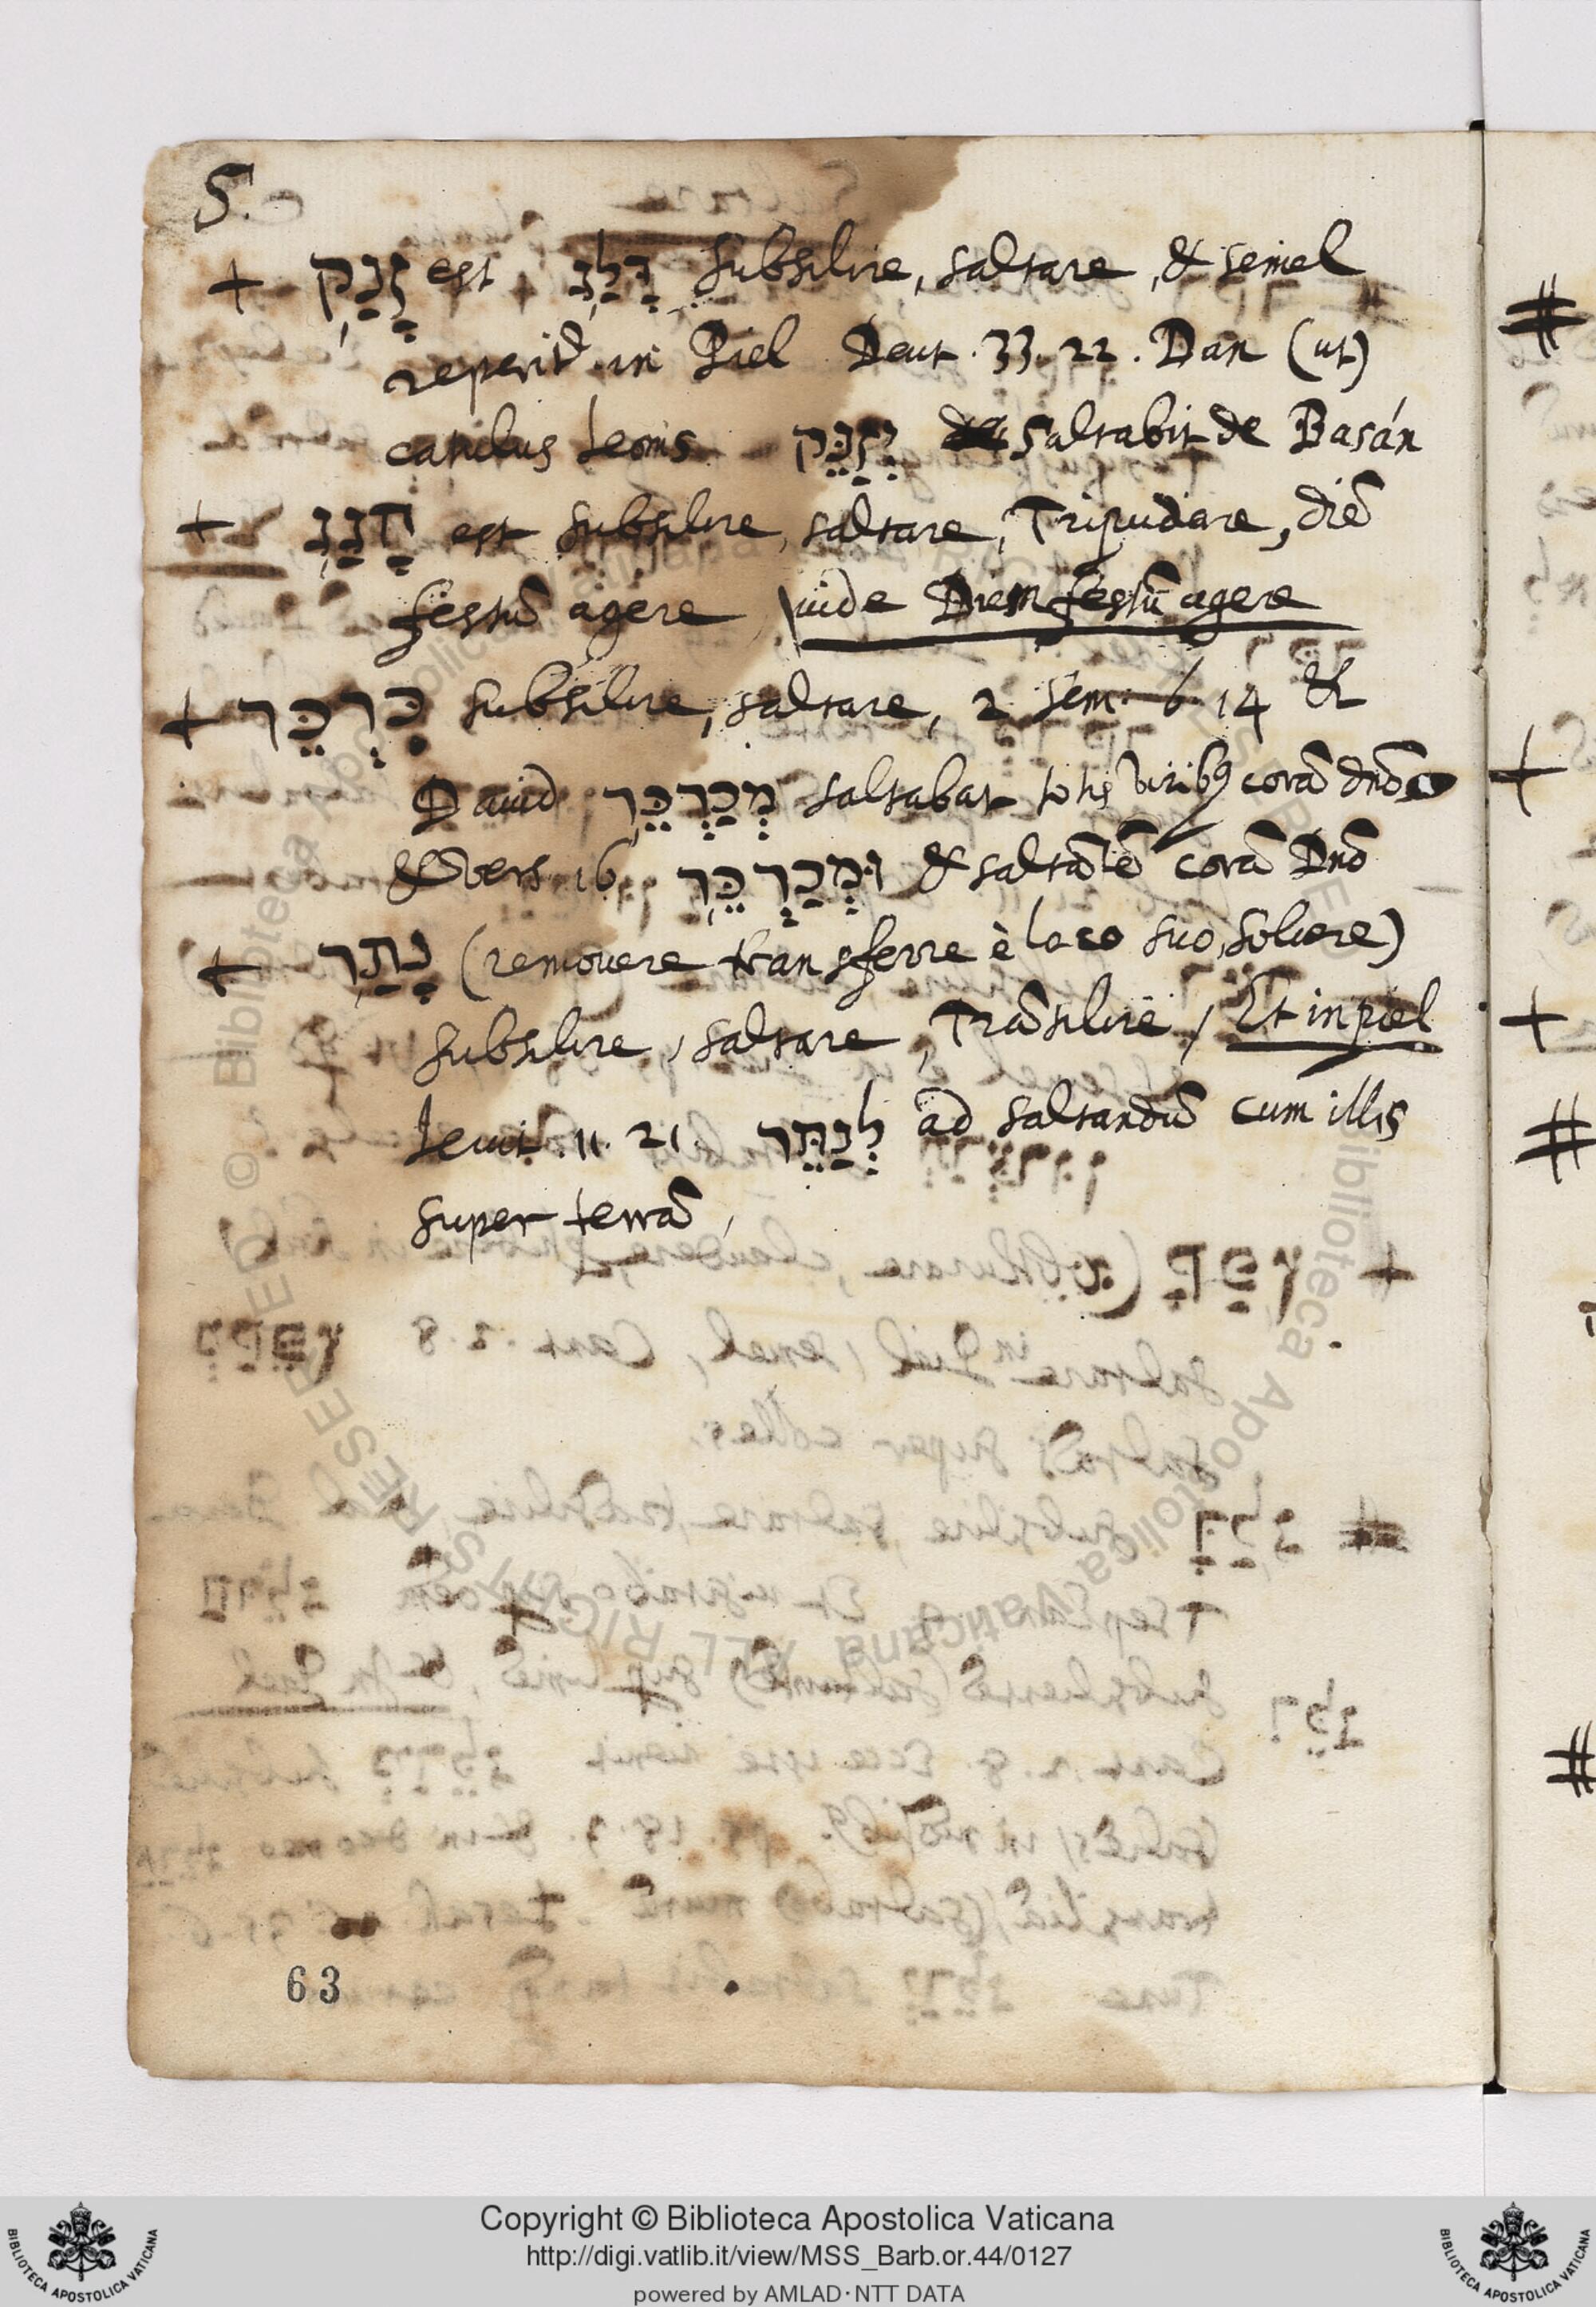 S.
+ זָנַק est דָּלַג subsilire, saltare, & semel
reperit᷑ in Piel Deut. 33. 22. Dan (ut)
catulus leonis יְזַנֵּק saltabit de Basán
+ חָגַג est subsilire, saltare, Tripudiare, diē
festū agere, vide Diem festū agere
+ כִּרְכֵּר subsilire, saltare, 2 Sem. 6 14 &
David מְכַרְכֵּר saltabat totis viribꝰ corā dnō
& vers. 16 וּמְכַרְכֵּר & saltātē corā Dnō
+ נָתַר (removere transferre è loco suo, solvere)
subsilire, saltare, Trāsilire, Et in piel
Levit. 11. 21. לְנַתֵּר ad saltandū cum illis
super terrā,
63
Copyright © Biblioteca Apostolica Vaticana
http://digi.vatlib.it/view/MSS_Barb.or.44/0127
powered by AMLAD·NTT DATA
BIBLIOTECA APOSTOLICA VATICANA
BIBLIOTECA APOSTOLICA VATICANA